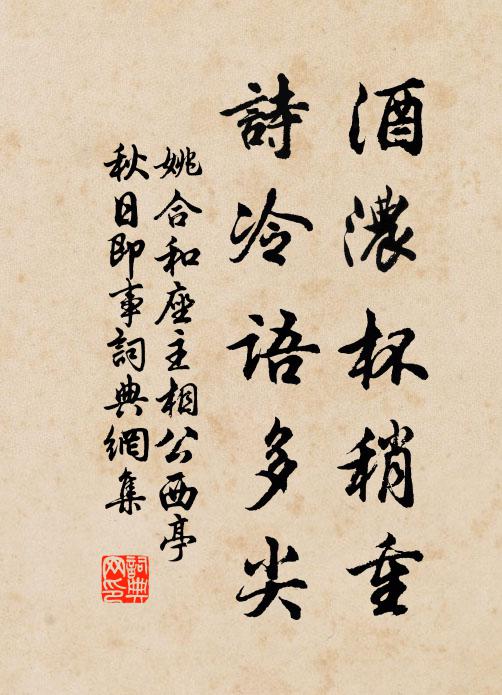 酒濃杯稍重
詩冷語多尖
姚合和座主相公西亭
秋日即事詞典網集
詞典
网印